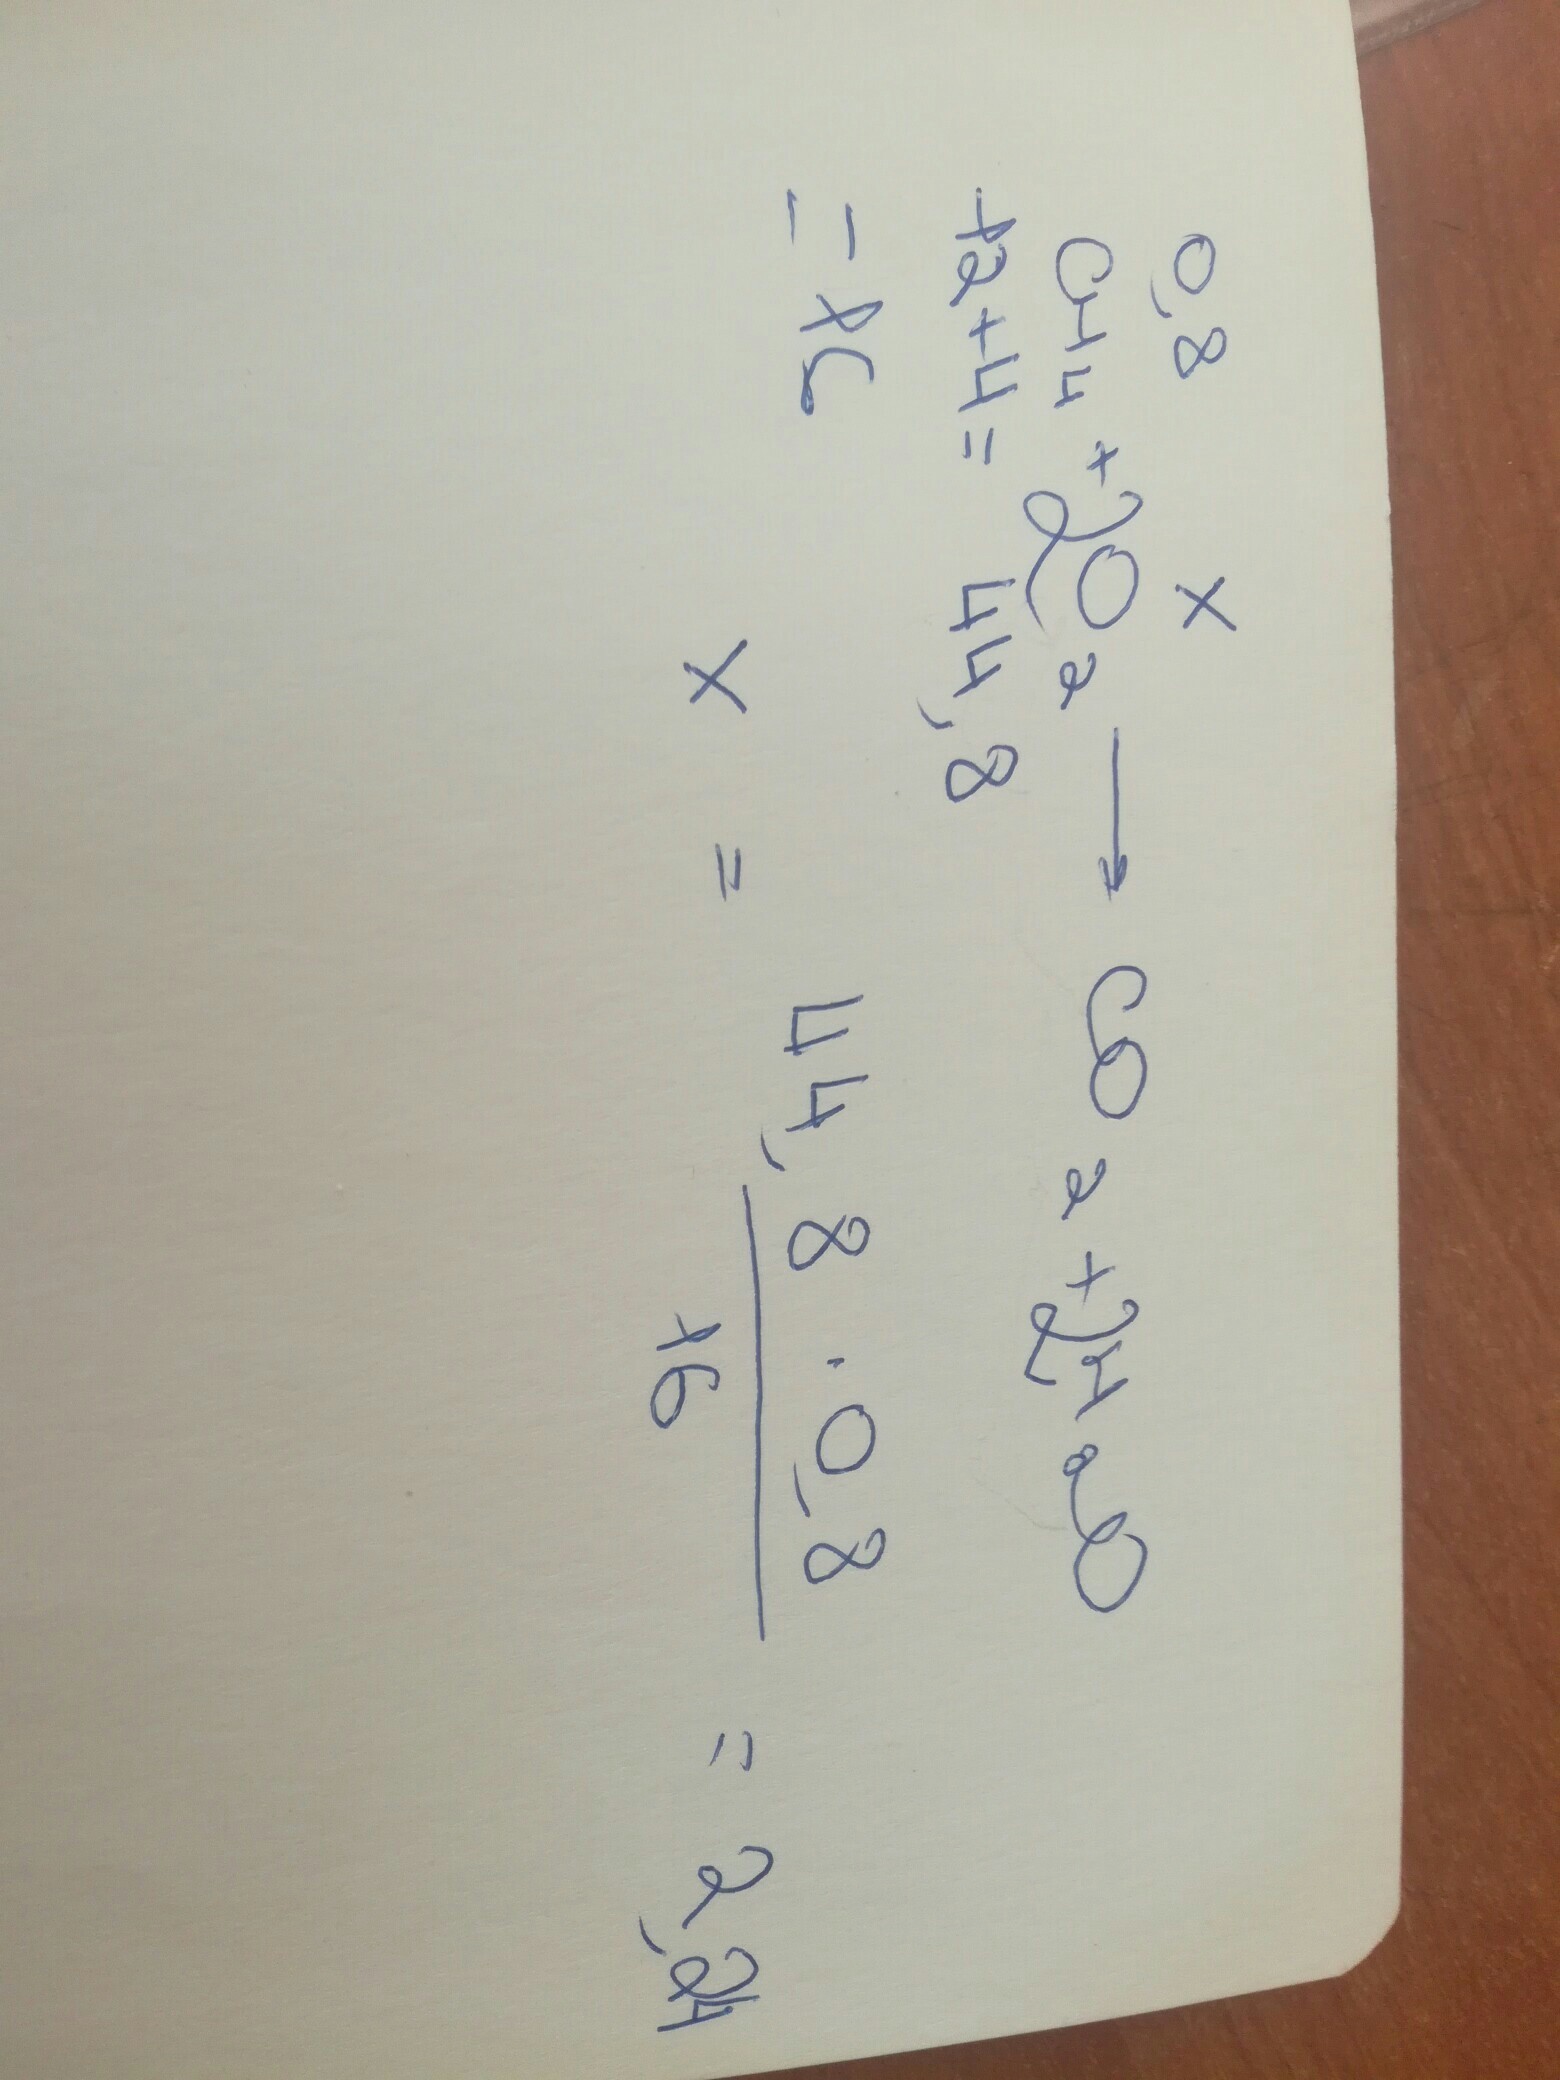 0,8 x
CH4 + 2O2 → CO2 + 2H2O
12+4= 44,8
= 16
x = 44,8 · 0,8 = 2,24
16